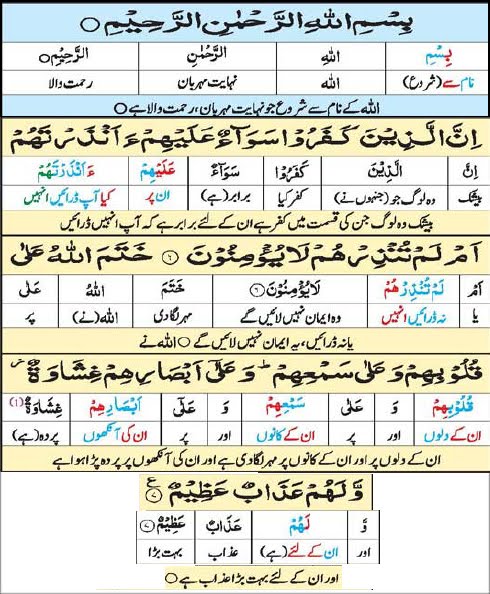 بِسْمِ اللهِ الرَّحْمٰنِ الرَّحِیْمِ ○
بِسْمِ اللهِ الرَّحْمٰنِ الرَّحِیْمِ○
نام سے (شروع) اللہ نہایت مہربان رحمت والا
اللہ کے نام سے شروع جو نہایت مہربان، رحمت والا ہے○
اِنَّ الَّذِیْنَ کَفَرُوْا سَوَآءٌ عَلَیْهِمْ ءَاَنْذَرْتَهُمْ
اِنَّ الَّذِیْنَ کَفَرُوْا سَوَآءٌ عَلَیْهِمْ ءَاَنْذَرْتَهُمْ
بیشک وہ لوگ جو (جنہوں نے) کفر کیا برابر (ہے) ان پر کیا آپ ڈرائیں انہیں
بیشک وہ لوگ جن کی قسمت میں کفر ہے ان کے لئے برابر ہے کہ آپ انہیں ڈرائیں
اَمْ لَمْ تُنْذِرْهُمْ لَا یُؤْمِنُوْنَ ۶ خَتَمَ اللهُ عَلٰی
اَمْ لَمْ تُنْذِرْهُمْ لَا یُؤْمِنُوْنَ ۶ خَتَمَ اللهُ عَلٰی
یا نہ ڈرائیں انہیں وہ ایمان نہیں لائیں گے مہر لگا دی اللہ (نے) پر
یا نہ ڈرائیں، یہ ایمان نہیں لائیں گے ○ اللہ نے
قُلُوْبِهِمْ وَعَلٰی سَمْعِهِمْ ؕ وَعَلٰۤی اَبْصَارِهِمْ غِشَاوَةٌ ؗ
قُلُوْبِهِمْ وَ عَلٰی سَمْعِهِمْ وَ عَلٰۤی اَبْصَارِهِمْ غِشَاوَةٌ (۱)
ان کے دلوں پر اور پر ان کے کانوں اور پر ان کی آنکھوں پردہ (ہے)
ان کے دلوں پر اور ان کے کانوں پر مہر لگادی ہے اور ان کی آنکھوں پر پردہ پڑا ہوا ہے
وَّلَهُمْ عَذَابٌ عَظِیْمٌ ۷ ع
وَّ لَهُمْ عَذَابٌ عَظِیْمٌ ۷
اور ان کے لئے (ہے) عذاب بہت بڑا
اور ان کے لئے بہت بڑا عذاب ہے○